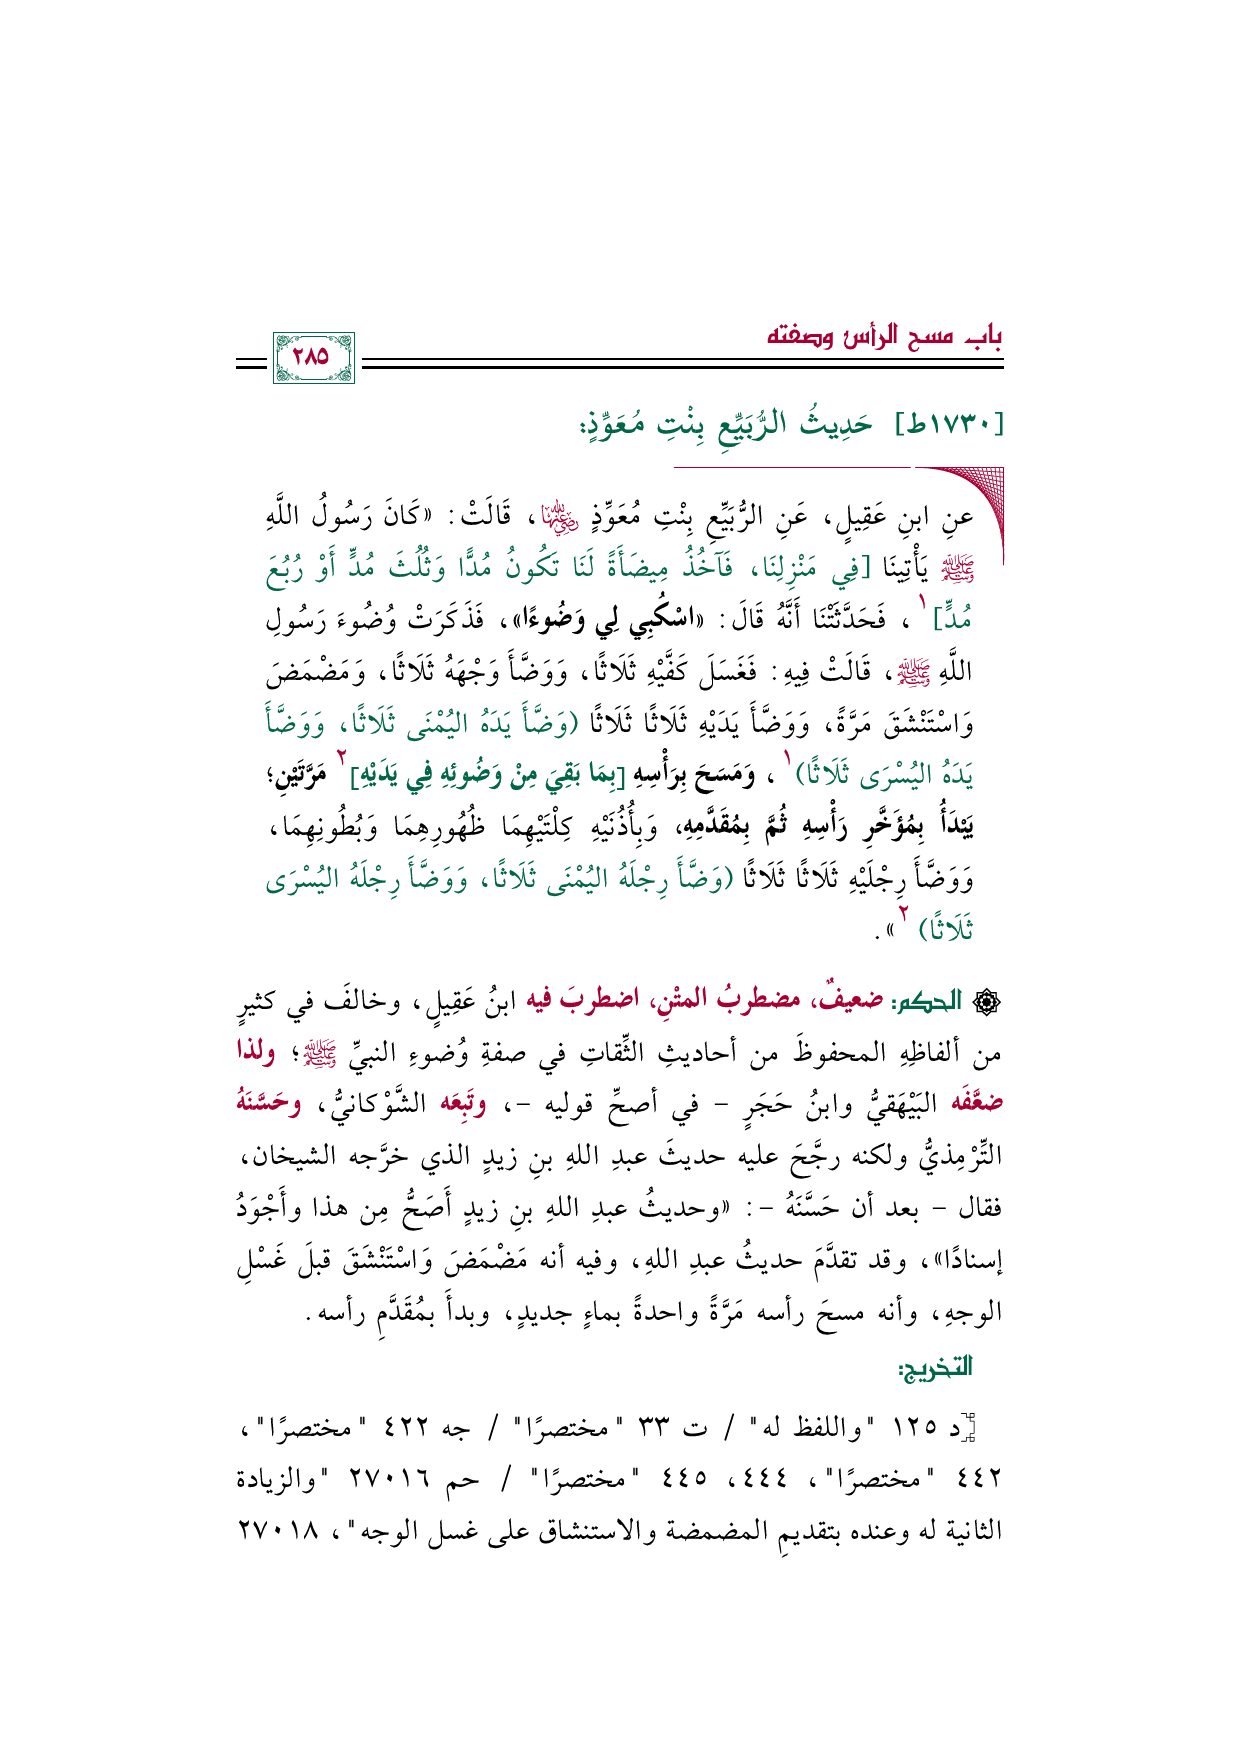 باب مسح الرأس وصفته
٢٨٥
[١٧٣٠ط] حَدِيثُ الرُّبَيِّعِ بِنْتِ مُعَوِّذٍ:
عنِ ابنِ عَقِيلٍ، عَنِ الرُّبَيِّعِ بِنْتِ مُعَوِّذٍ رضي الله عنها، قَالَتْ: «كَانَ رَسُولُ اللَّهِ
ﷺ يَأْتِينَا [فِي مَنْزِلِنَا، فَآخُذُ مِيضَأَةً لَنَا تَكُونُ مُدًّا وَثُلُثَ مُدٍّ أَوْ رُبُعَ
مُدٍّ]١، فَحَدَّثَتْنَا أَنَّهُ قَالَ: «اسْكُبِي لِي وَضُوءًا»، فَذَكَرَتْ وُضُوءَ رَسُولِ
اللَّهِ ﷺ، قَالَتْ فِيهِ: فَغَسَلَ كَفَّيْهِ ثَلَاثًا، وَوَضَّأَ وَجْهَهُ ثَلَاثًا، وَمَضْمَضَ
وَاسْتَنْشَقَ مَرَّةً، وَوَضَّأَ يَدَيْهِ ثَلَاثًا ثَلَاثًا (وَضَّأَ يَدَهُ اليُمْنَى ثَلَاثًا، وَوَضَّأَ
يَدَهُ اليُسْرَى ثَلَاثًا)١، وَمَسَحَ بِرَأْسِهِ [بِمَا بَقِيَ مِنْ وَضُوئِهِ فِي يَدَيْهِ]٢ مَرَّتَيْنِ؛
يَبْدَأُ بِمُؤَخَّرِ رَأْسِهِ ثُمَّ بِمُقَدَّمِهِ، وَبِأُذُنَيْهِ كِلْتَيْهِمَا ظُهُورِهِمَا وَبُطُونِهِمَا،
وَوَضَّأَ رِجْلَيْهِ ثَلَاثًا ثَلَاثًا (وَضَّأَ رِجْلَهُ اليُمْنَى ثَلَاثًا، وَوَضَّأَ رِجْلَهُ اليُسْرَى
ثَلَاثًا)٢».
الحكم: ضعيفٌ، مضطربُ المتْنِ، اضطربَ فيه ابنُ عَقِيلٍ، وخالفَ في كثيرٍ
من ألفاظِهِ المحفوظَ من أحاديثِ الثِّقاتِ في صفةِ وُضوءِ النبيِّ ﷺ؛ ولذا
ضعَّفَه البَيْهَقيُّ وابنُ حَجَرٍ – في أصحِّ قوليه –، وتَبِعَه الشَّوْكانيُّ، وحَسَّنَهُ
التِّرْمِذيُّ ولكنه رجَّحَ عليه حديثَ عبدِ اللهِ بنِ زيدٍ الذي خرَّجه الشيخان،
فقال – بعد أن حَسَّنَهُ –: «وحديثُ عبدِ اللهِ بنِ زيدٍ أَصَحُّ مِن هذا وأَجْوَدُ
إسنادًا»، وقد تقدَّمَ حديثُ عبدِ اللهِ، وفيه أنه مَضْمَضَ وَاسْتَنْشَقَ قبلَ غَسْلِ
الوجهِ، وأنه مسحَ رأسه مَرَّةً واحدةً بماءٍ جديدٍ، وبدأَ بمُقَدَّمِ رأسه.
التخريج:
[د ١٢٥ "واللفظ له" / ت ٣٣ "مختصرًا" / جه ٤٢٢ "مختصرًا"،
٤٤٢ "مختصرًا"، ٤٤٤، ٤٤٥ "مختصرًا" / حم ٢٧٠١٦ "والزيادة
الثانية له وعنده بتقديمِ المضمضة والاستنشاق على غسل الوجه"، ٢٧٠١٨